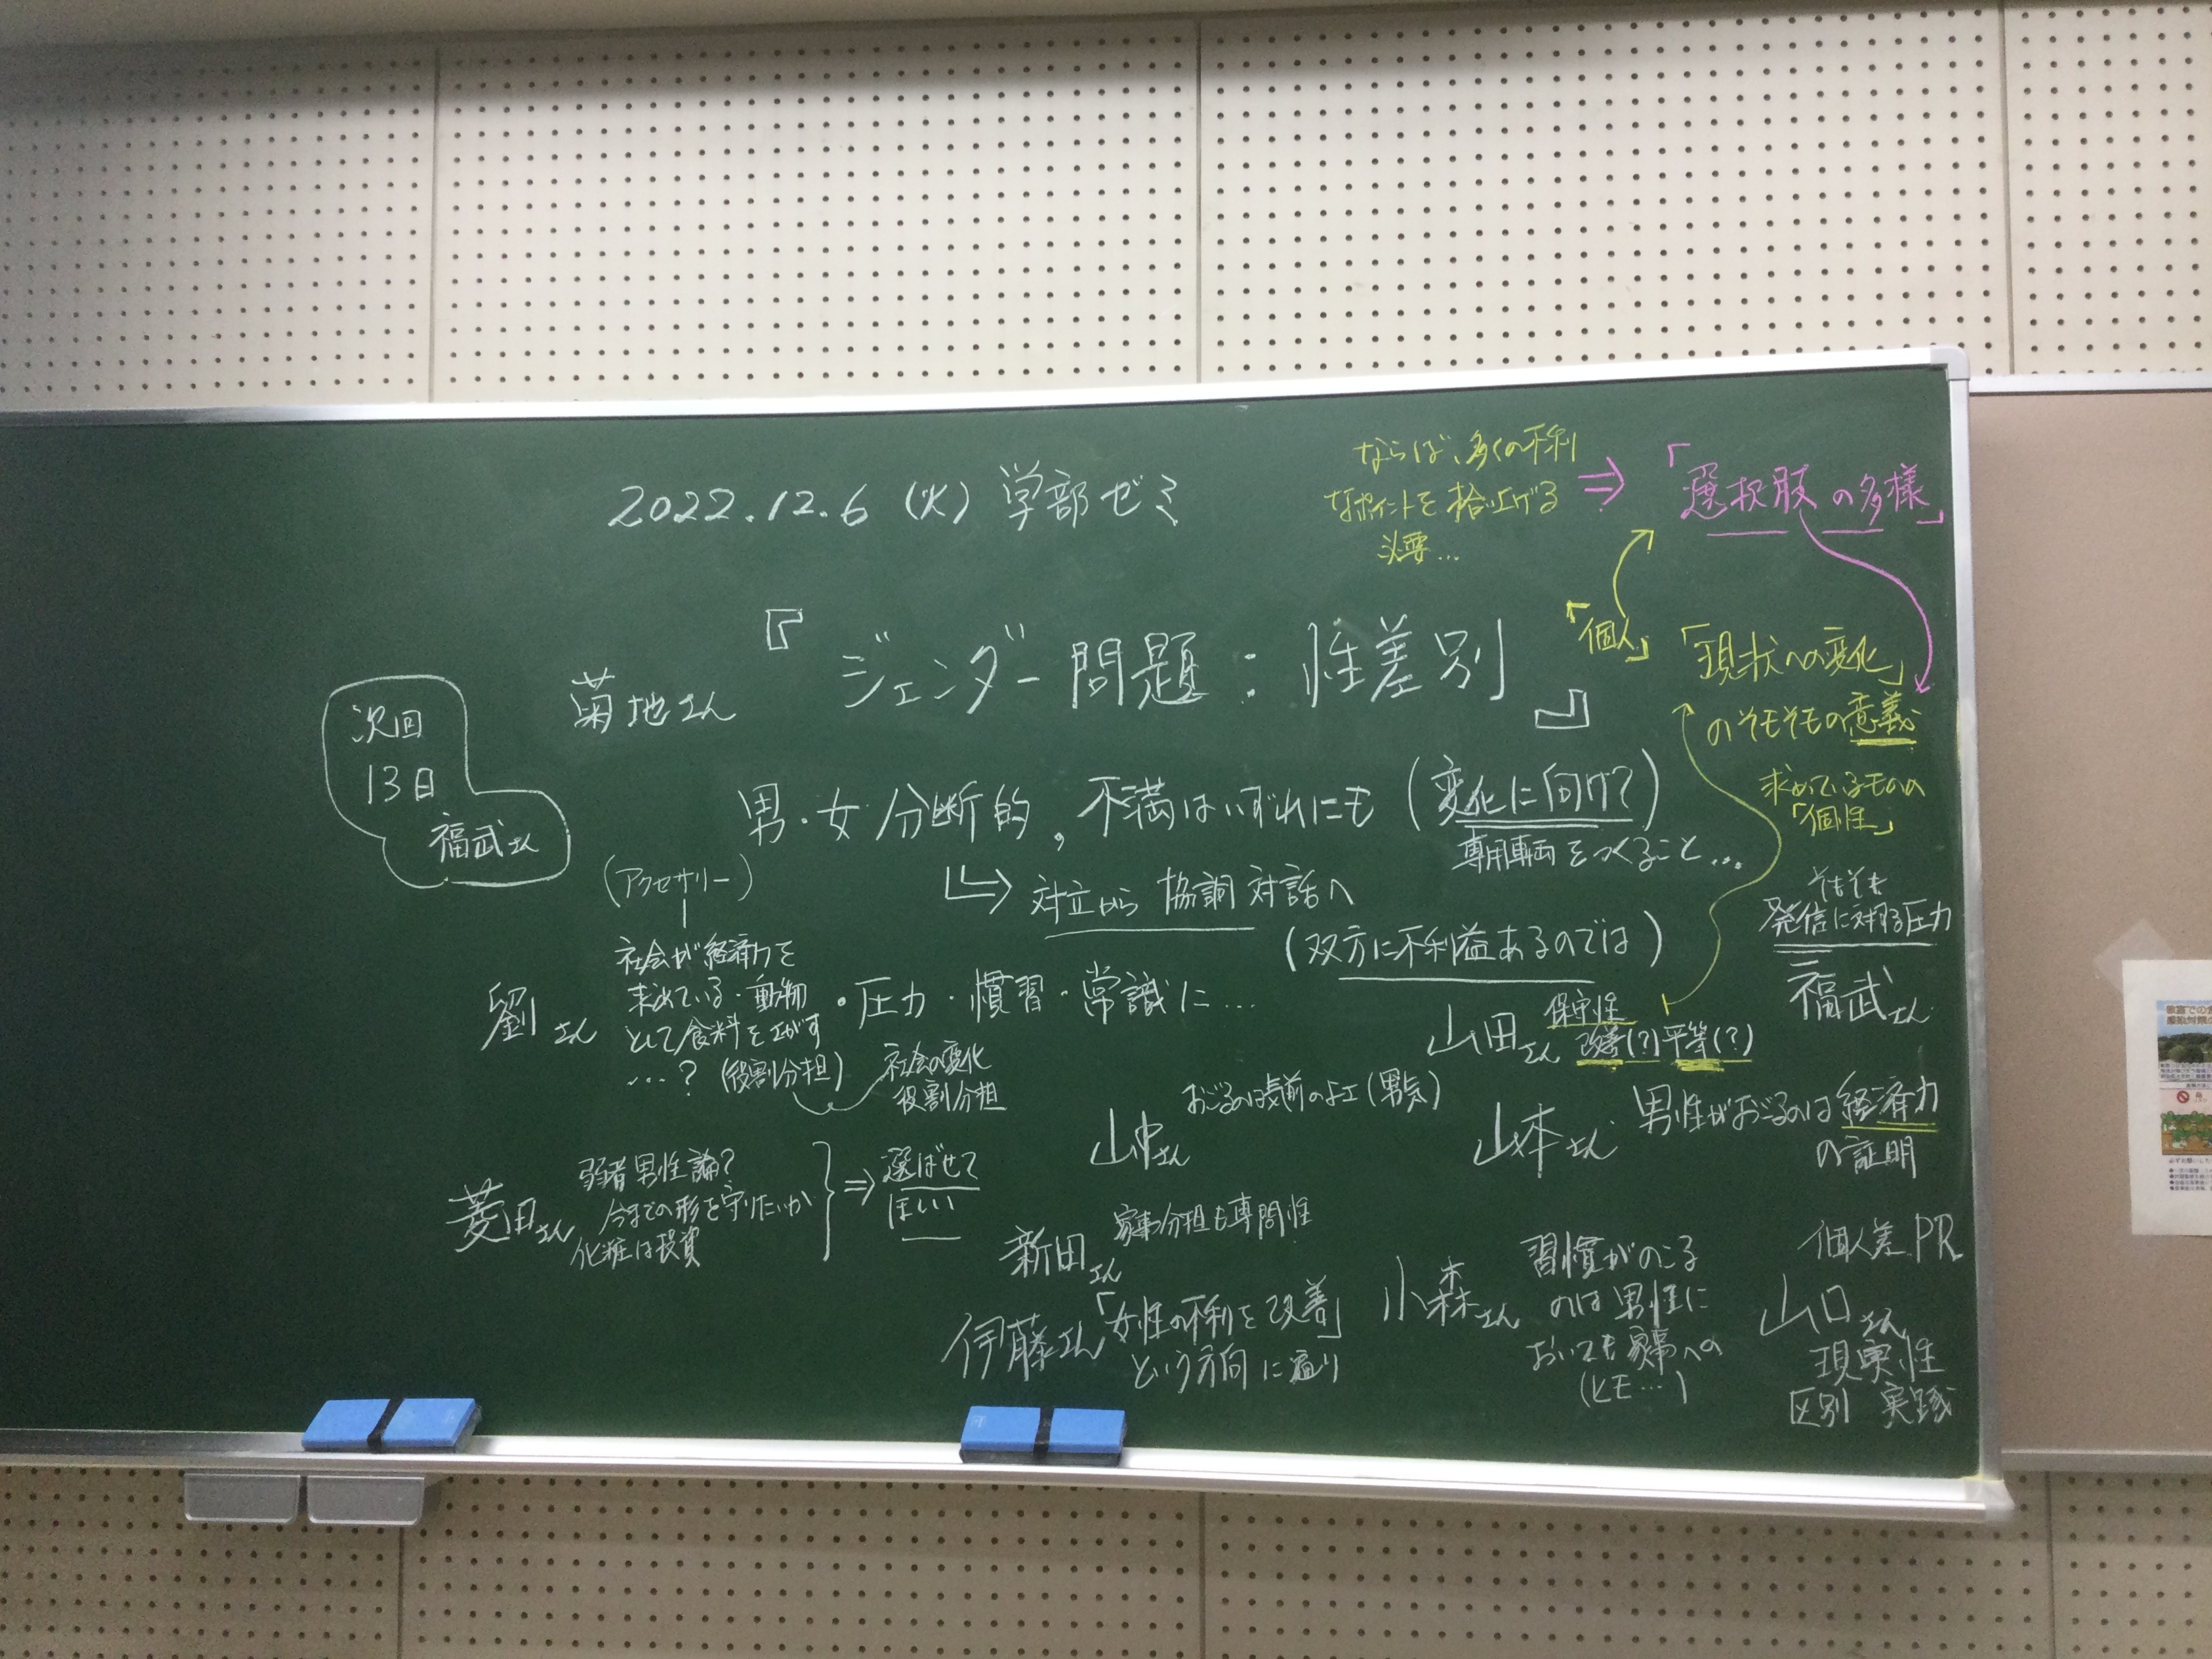 2022.12.6 (火) 学部ゼミ
ならば、多くの不利
なポイントを拾い上げる
必要…
⇒
「選択肢の多様」
「個人」
「現状への変化」
のそもそもの意義
求めているものの
「個性」
菊地さん
『ジェンダー問題：性差別』
次回
13日
福武さん
男・女 分断的, 不満はいずれにも (変化に向けて)
専用車両をつくること…
対立から 協調 対話へ
(双方に不利益あるのでは)
そもそも
発信に対する圧力
福武さん
(アクセサリー)
劉さん
社会が経済力を
求めている・動物
として食料をさがす
…? (役割分担)
・圧力・慣習・常識に…
社会の変化
役割分担
山田さん
保守性
改善(?)平等(?)
山中さん
おごるのは気前のよさ(男気)
山本さん
男性がおごるのは経済力
の証明
菱田さん
弱者男性論?
今までの形を守りたいか
化粧は投資
⇒ 選ばせて
ほしい
新田さん
家事分担も専門性
伊藤さん
「女性の不利を改善」
という方向に
小森さん
習慣がのこる
のは男性に
おいても家事への
(ヒモ…)
個人差 PR
山口さん
現実性
区別 実践